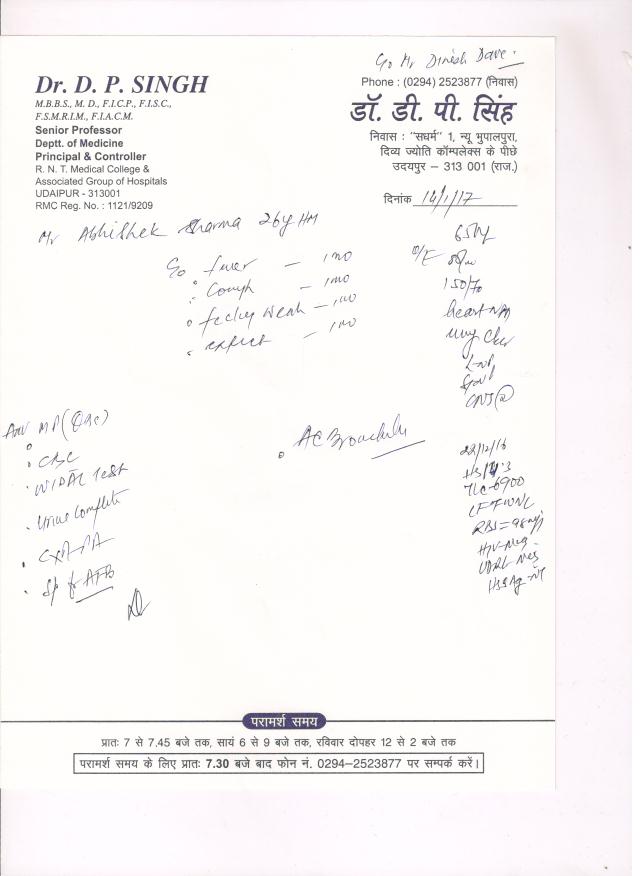 C/o Mr Dinesh Dave
Dr. D. P. SINGH
M.B.B.S., M. D., F.I.C.P., F.I.S.C.,
F.S.M.R.I.M., F.I.A.C.M.
Senior Professor
Deptt. of Medicine
Principal & Controller
R. N. T. Medical College &
Associated Group of Hospitals
UDAIPUR - 313001
RMC Reg. No. : 1121/9209
Phone : (0294) 2523877 (निवास)
डॉ. डी. पी. सिंह
निवास : "सधर्म" 1, न्यू भुपालपुरा,
दिव्य ज्योति कॉम्पलेक्स के पीछे
उदयपुर – 313 001 (राज.)
दिनांक 14/1/17
Mr Abhishek Sharma 26y HM
C/o fever — 1 mo
Cough — 1 mo
feeling weak — 1 mo
expect — 1 mo
O/E
150/70
heart
Adv MP (QBC)
CBC
WIDAL Test
Urine Complete
CXR-PA
Sp for AFB
AC Bronchitis
22/12/16
TLC-6900
RBS = 98
HIV-Neg
VDRL Neg
परामर्श समय
प्रातः 7 से 7.45 बजे तक, सायं 6 से 9 बजे तक, रविवार दोपहर 12 से 2 बजे तक
परामर्श समय के लिए प्रातः 7.30 बजे बाद फोन नं. 0294–2523877 पर सम्पर्क करें।